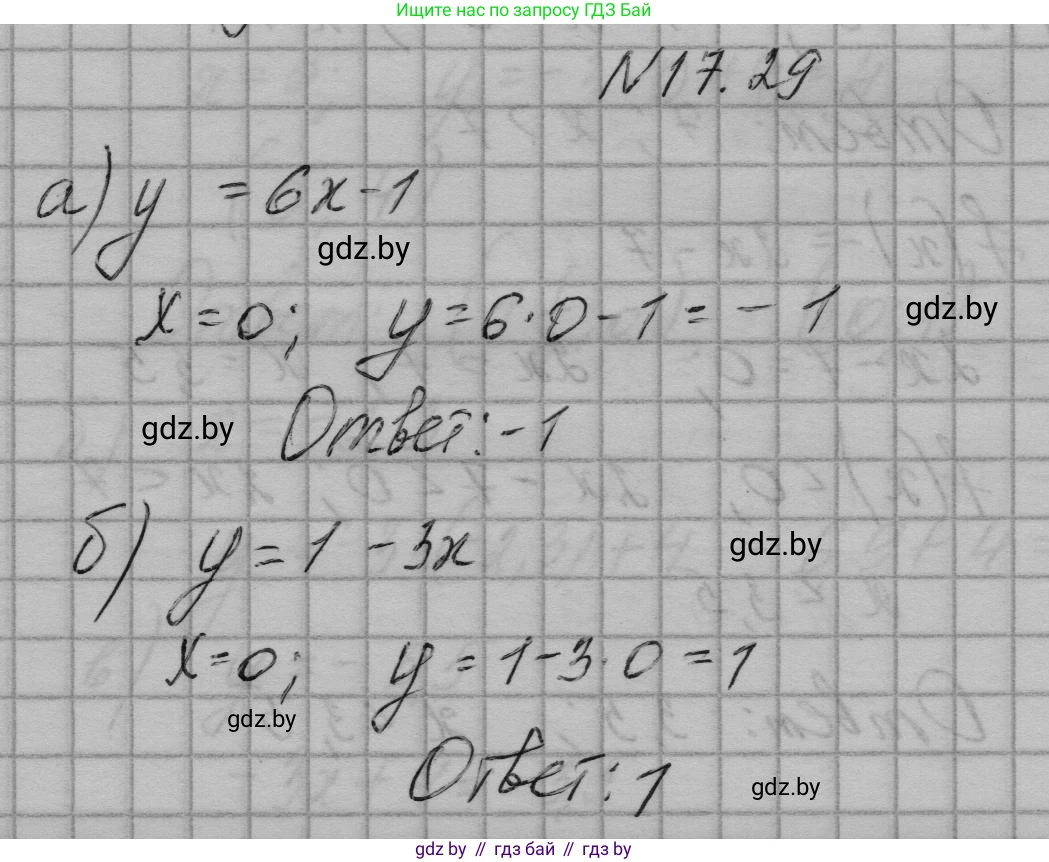 Ищите нас по запросу ГДЗ Бай
N 17.29
а) y = 6x - 1
gdz.by
x = 0; y = 6·0 - 1 = - 1
gdz.by
gdz.by
Ответ: - 1
б) y = 1 - 3x
gdz.by
x = 0; y = 1 - 3·0 = 1
gdz.by
Ответ: 1
gdz.by
gdz by // гдз бай // gdz by